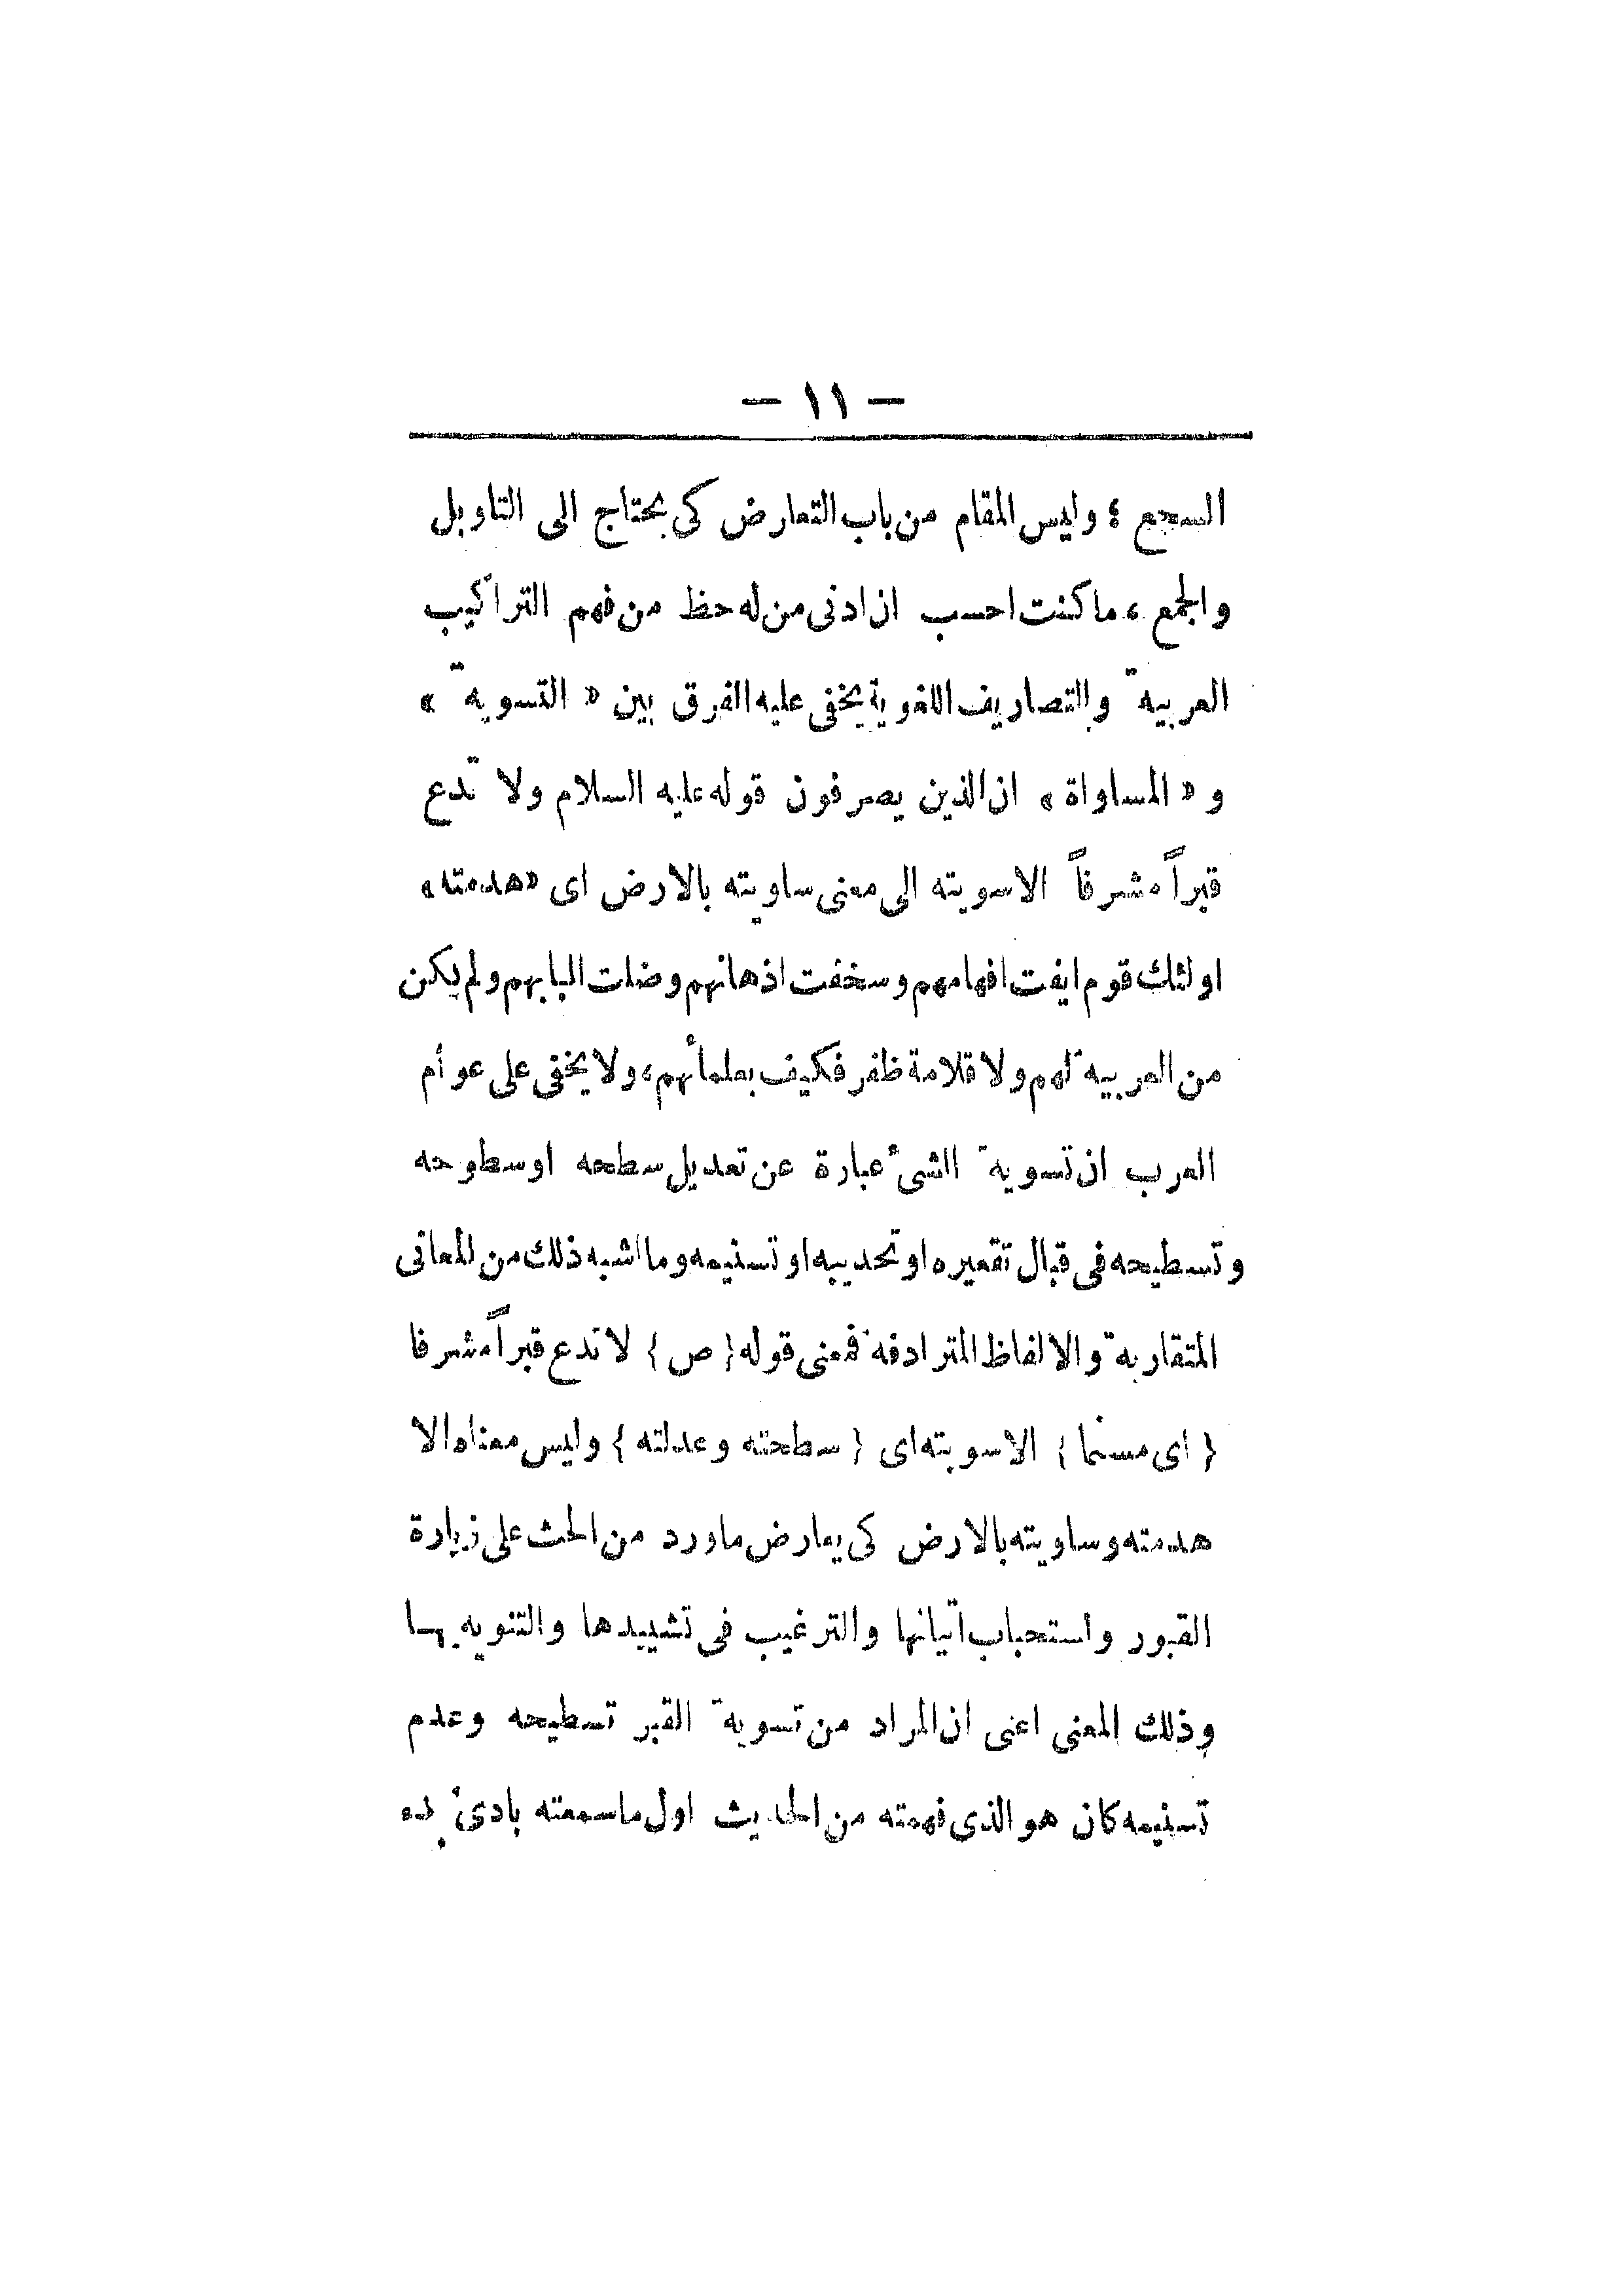 - ١١ -
السجع ؛ وليس المقام من باب التعارض كى يحتاج الى التاويل
والجمع ، ما كنت احسب ان ادنى من له حظ من فهم التراكيب
العربية والتصاريف اللغوية يخفى عليه الفرق بين « التسوية »
و « المساواة » ان الذين يصرفون قوله عليه السلام ولا تدع
قبراً مشرفاً الا سويته الى معنى ساويته بالارض اى «هدمته»
اولئك قوم ايفت افهامهم وسخفت اذهانهم وضلت البابهم ولم يكن
من العربية لهم ولا قلامة ظفر فكيف بعلمأئهم، ولا يخفى على عوأم
العرب ان تسوية الشىٔ عبارة عن تعديل سطحه او سطوحه
وتسطيحه فى قبال تقعيره او تحديبه او تسنيمه وما اشبه ذلك من المعانى
المتقاربة والالفاظ المترادفة فمعنى قوله { ص } لا تدع قبراً مشرفا
{ اى مسنما } الا سويته اى { سطحته وعدلته } وليس معناه الا
هدمته وساويته بالارض كى يعارض ما ورد من الحث على زيارة
القبور واستحباب اتيانها والترغيب فى تشييدها والتنويه بها
وذلك المعنى اعنى ان المراد من تسوية القبر تسطيحه وعدم
تسنيمه كان هو الذى فهمته من الحديث اول ما سمعته بادىٔ بدء